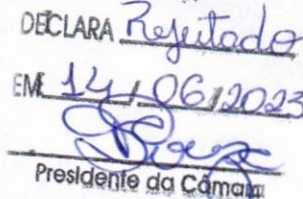 DECLARA Rejeitado
EM 14 / 06 / 2023
Presidente da Câmara